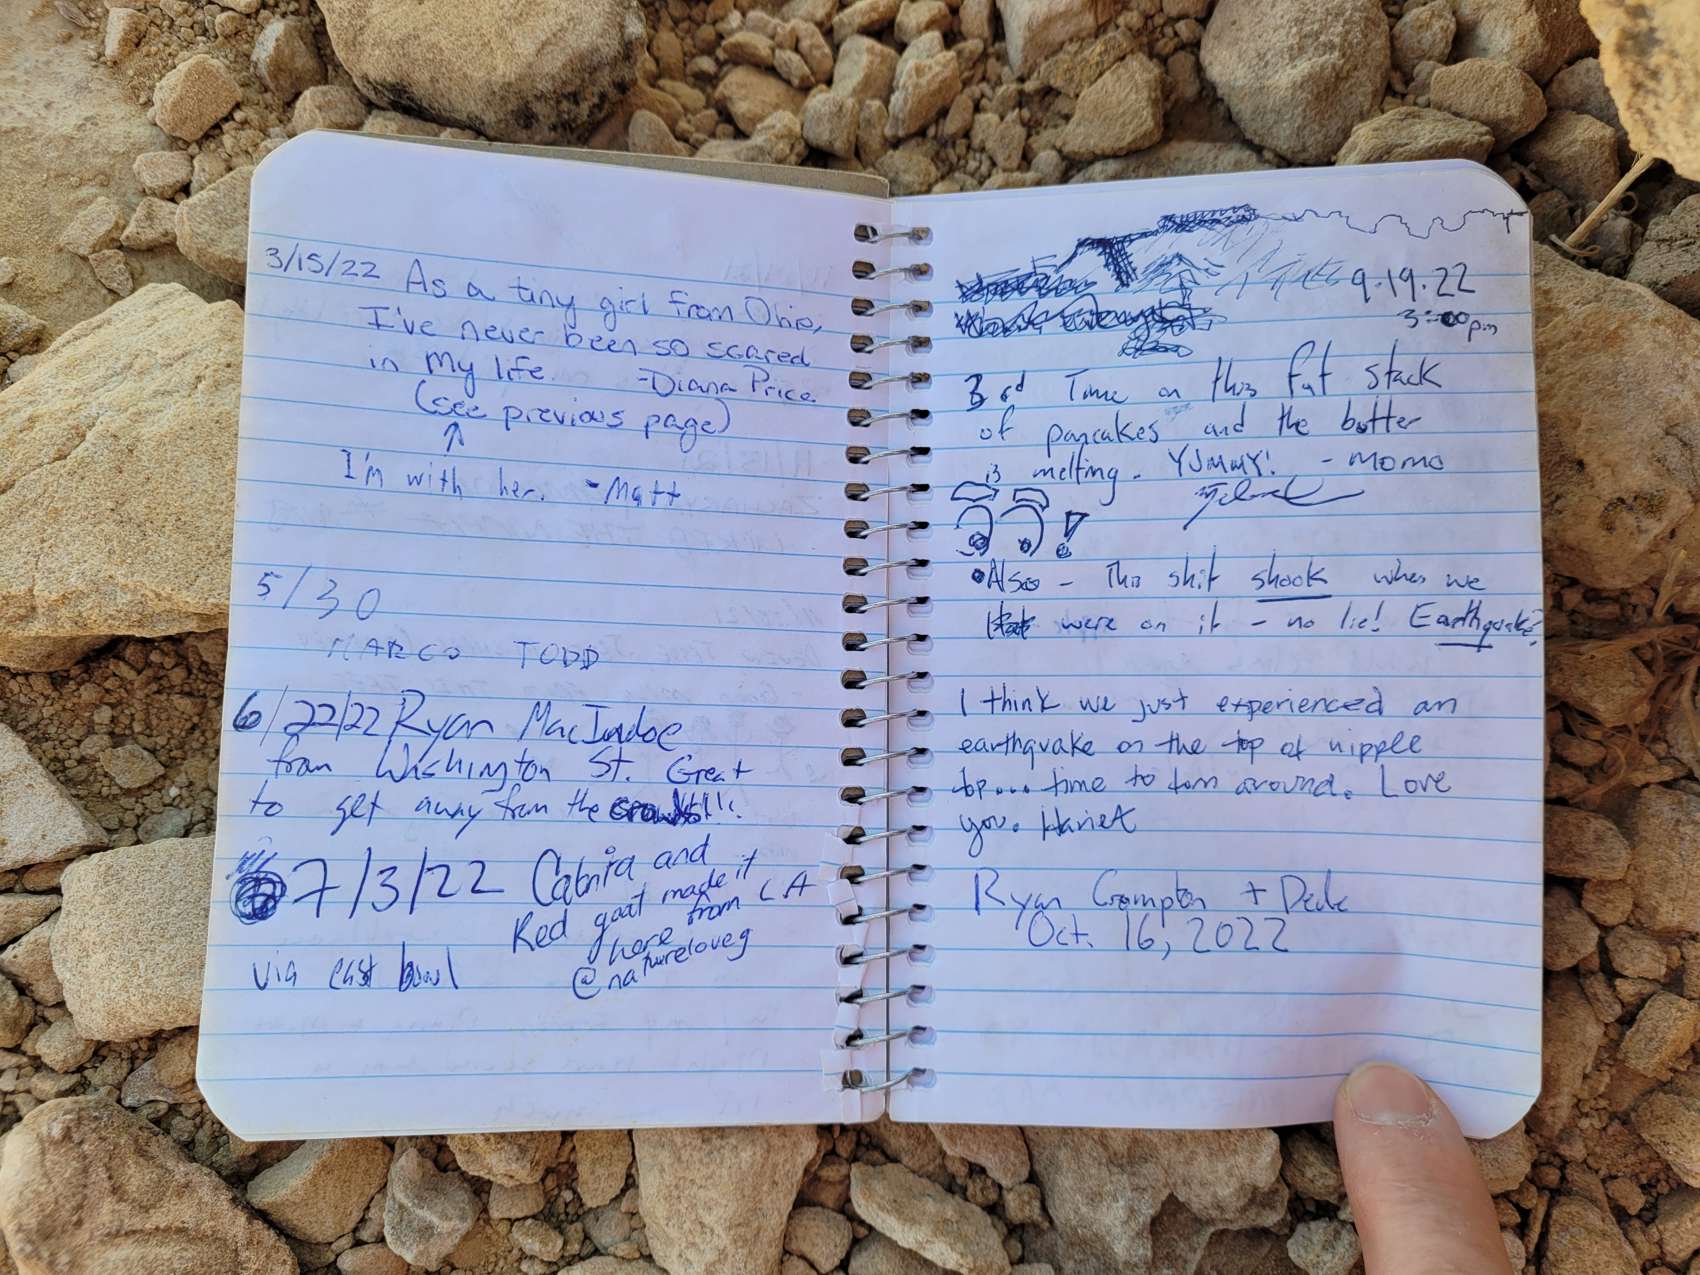 3/15/22 As a tiny girl from Ohio,
I've never been so scared
in my life. -Diana Price.
(see previous page)
I'm with her. -Matt
5/30
MARCO TODD
6/22/22 Ryan MacIndoe
from Washington St. Great
to get away from the crowds!!!
7/3/22 Cabria and
Red goat made it
here from LA
@natureloveg
via east bowl
9.19.22
3:00pm
3rd Time on this fat stack
of pancakes and the butter
is melting. YUMMY! - MOMO
??!
•Also - This shit shook when we
were on it - no lie! Earthquake?
I think we just experienced an
earthquake on the top of nipple
top... time to turn around. Love
you. Harriet
Ryan Crompton +
Oct. 16, 2022